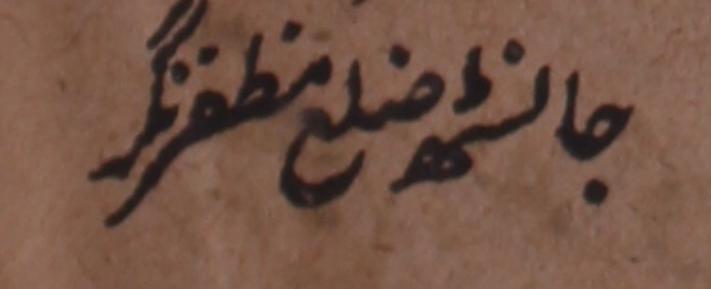 جانسٹھ ضلع مظفرنگر